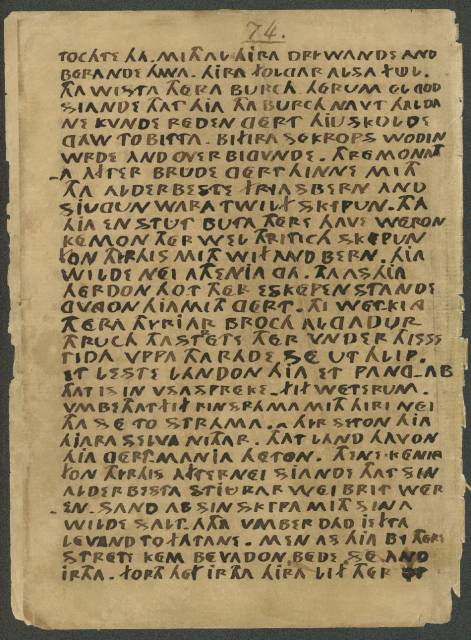 74.
TOCHTE HA. MITH AL HIRA DRIWANDE AND
BERANDE HAVA. HIRA FOLGAR ALSA FUL.
THA WISTA THERA BURCH HERUM EL GOD
SIANDE THAT HIA THA BURCH NAVT HALDA
NE KVNDE REDEN GERT HIU SKOLDE
GAW TO BITTA. BIFIRA SEKROPS WODIN
WRDE AND OVER BIGVNDE. THRE MONATH
A AFTER BRUDE GERT HINNE MITH
THA ALDERBESTE FRIAS BERN AND
SIUGUN WARA TWILF SKIPUN. THA
HIA EN STUT BUTA THERE HAVE WERON
KEMON THER WEL THRITICH SKEPUN
FON THIRHIS MITH WIF AND BERN. HIA
WILDE NEI ATHENIA GA. THA AS HIA
HERDON HOT THER ESKEPEN STANDE
GVNGON HIA MITH GERT. THI WETKING
THERA THIRIAR BROCH ALGADUR
THRUCH THA STRETE THER VNDER HISSE
TIDA VPPA THA RADE SE UT HLIP.
ET LESTE LANDON HIA ET PANG-AB
THAT IS IN VSA SPREKE. FIF WETERUM.
VMBETHAT FIF RINSTRAMA MITH HIRI NEI
THA SE TO STRAMA. HIR SETON HIA
HIARA SELVA NITHAR. THAT LAND HAVON
HIA GERT.MANNIA HETON. THENE.KENING
FON THIRHIS AFTERNEI SIANDE THAT SIN
ALDERBESTA STIURAR WEI BRIT WER
EN. SAND AL SIN SKIPA MITH SINA
WILDE SALT.ATHA VMBER DAD IEFTA
LEVAND TO FATANE. MEN AS HIA BI THERE
STRETE KEM BEVADON BEDE SE AND
IRTHA. FORTH HEF IRTHA HIRA LIF THER